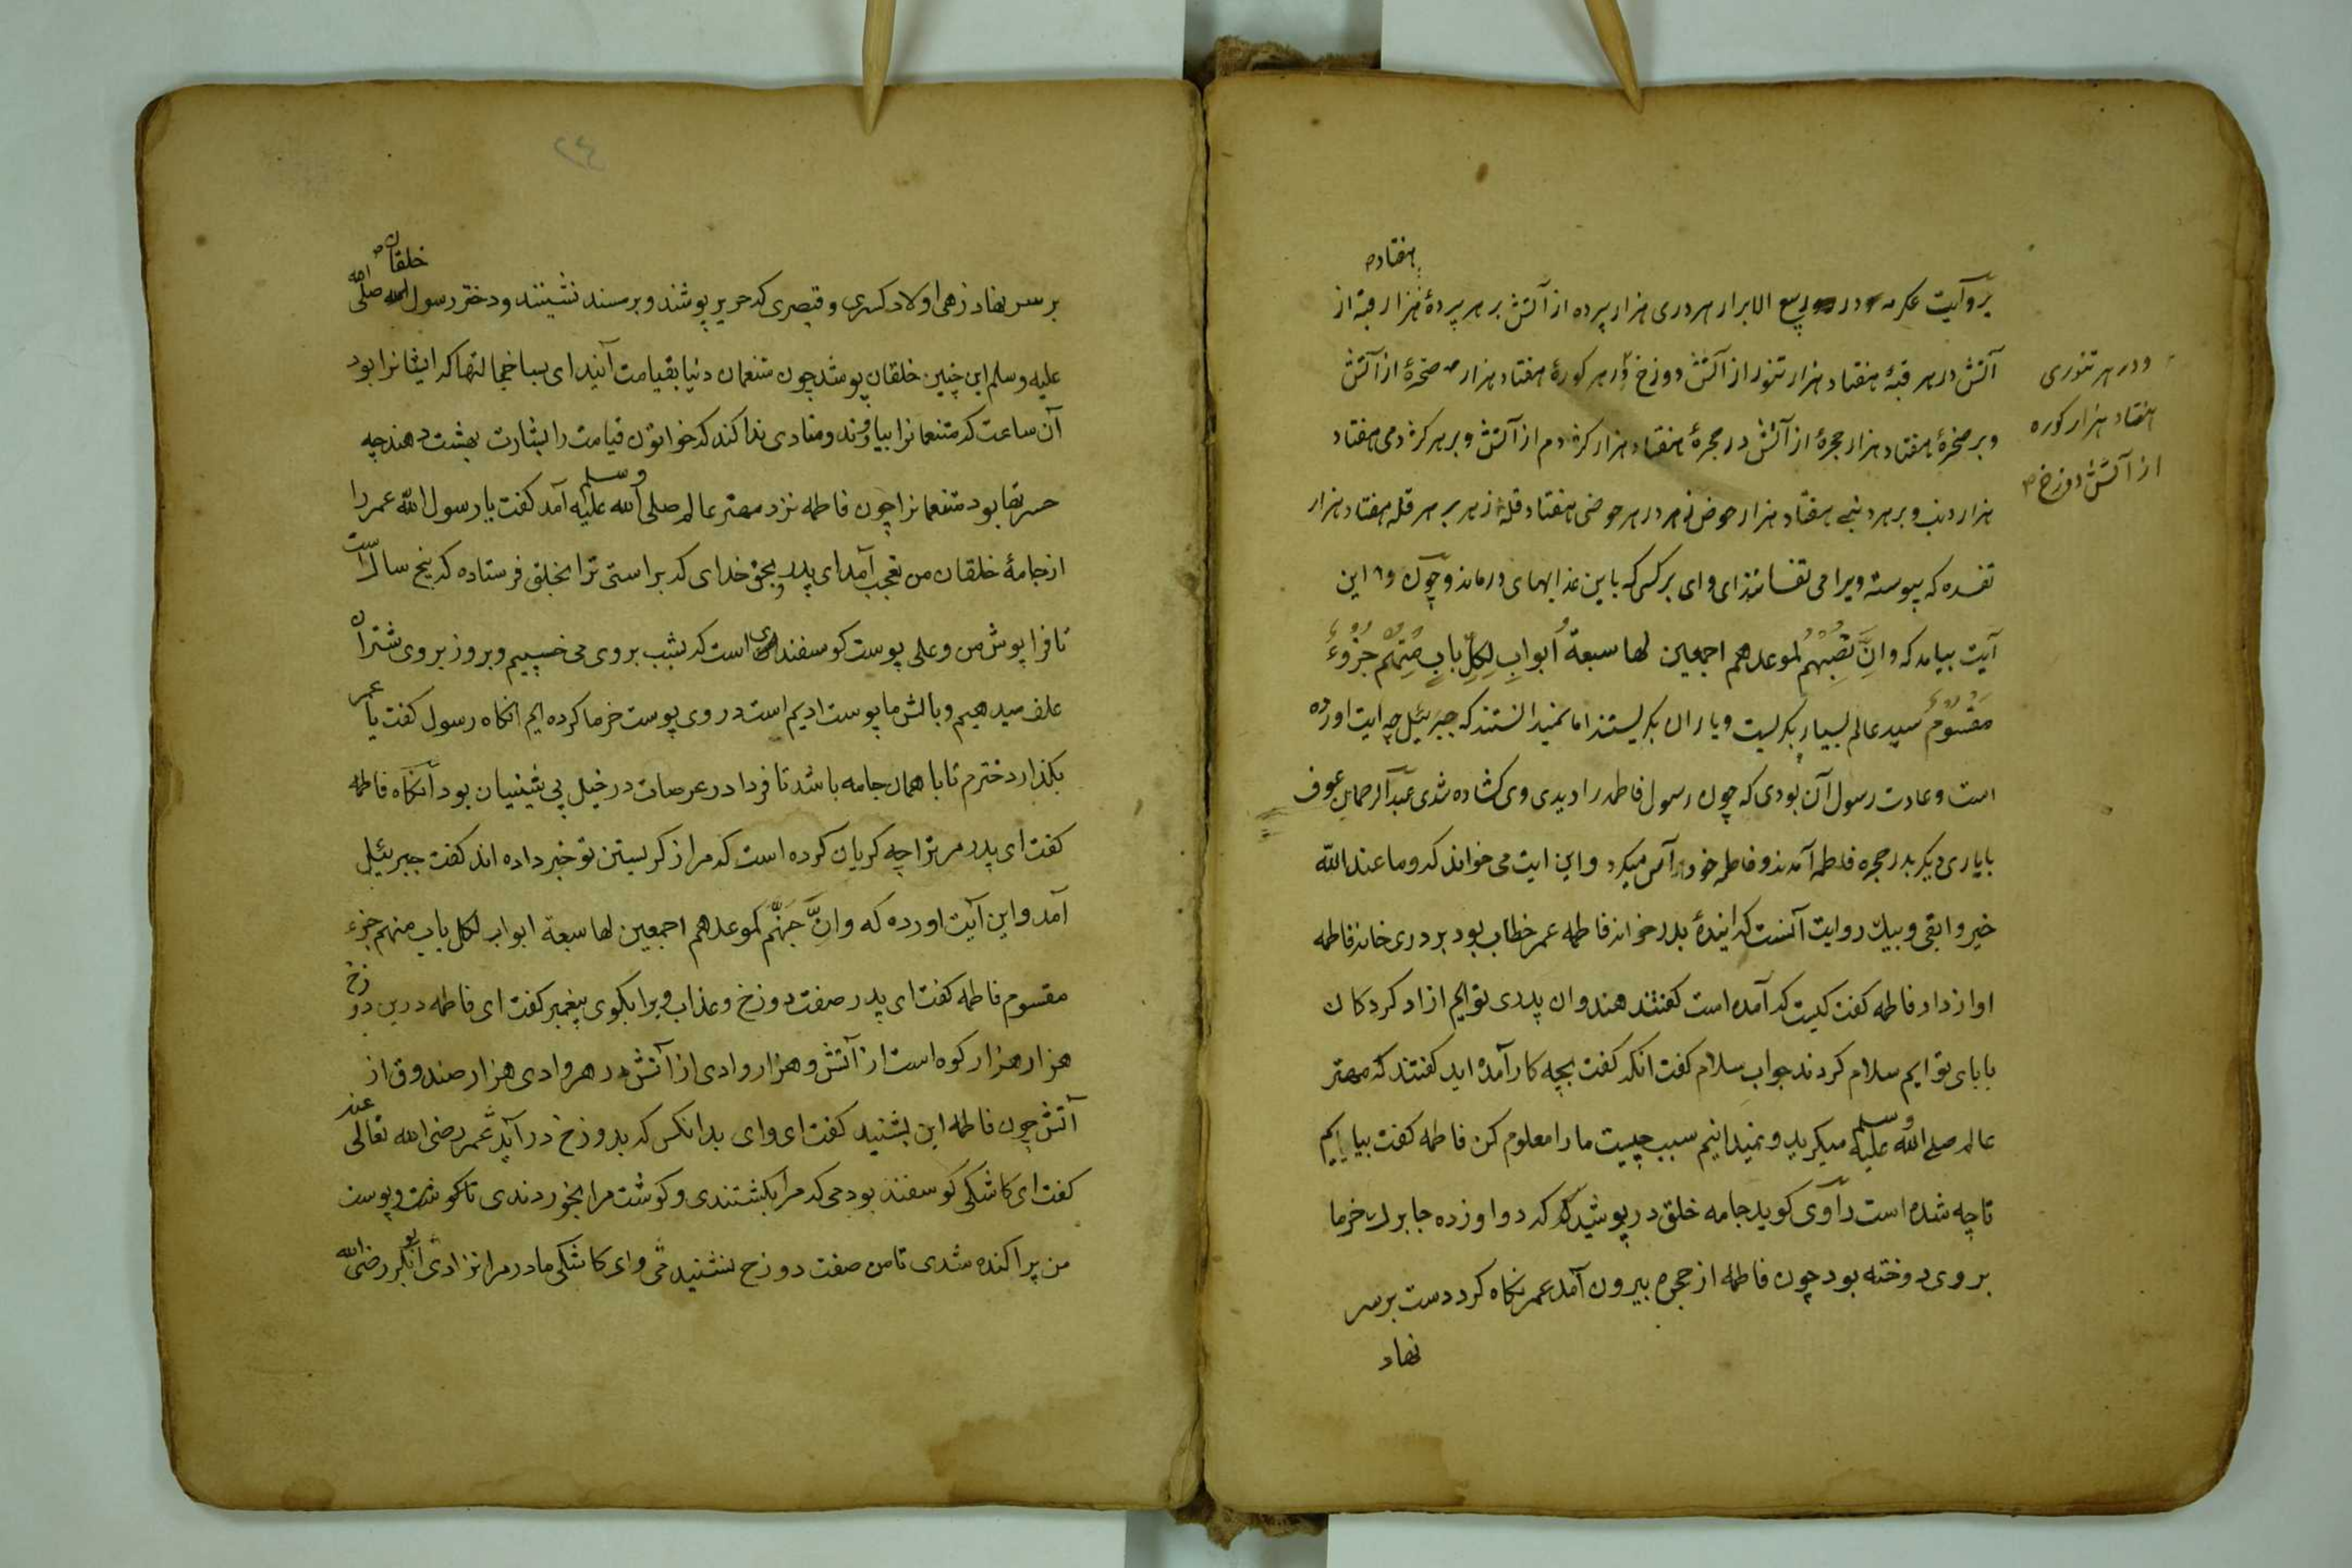 هفتاد
بروآیت عکرمه در ربیع الابرار هر دری هزار پرده از آتش بر هر پردهٔ هزار قبهٔ از
آتش در هر قبهٔ هفتاد هزار تنور از آتش دوزخ در هر کورهٔ هفتاد هزار صخرهٔ از آتش
ودر هر تنوری
هفتاد هزار کوره
از آتش دوزخ
وبر صخرهٔ هفتاد هزار حجرهٔ از آتش در حجرهٔ هفتاد هزار کژدم از آتش وبر هر کژدمی هفتاد
هزار دنب وبر هر دنبی هفتاد هزار حوض زهر در هر حوضی هفتاد قلهٔ زهر بر هر قله هفتاد هزار
تفسده که پیوسته ویرا می تفسانند ای وای بر کسی که باین عذابهای درماند وچون این
آیت بیامد که وان جهنم لموعدهم اجمعین لها سبعة أبواب لکل باب منهم جزء
مقسوم سید عالم بسیار بکریست ویاران بکریستند اما نمیدانستند که جبرئیل چه ایت اورده
است وعادت رسول آن بودی که چون رسول فاطمه را دیدی وی کشاده شدی عبدالرحمان عوف
بایاری دیکر بدر حجره فاطمه آمدند وفاطمه خود را آس میکرد واین ایت می خواند که وما عند الله
خیر وابقی وبیک روایت آنست که ایندهٔ بدر خواند فاطمه عمر خطاب بود بر دری خانه فاطمه
اواز داد فاطمه کفت کیست که آمده است کفتند هندوان پدری توایم ازاد کردکان
بابای توایم سلام کردند جواب سلام کفت انکه کفت بچه کار آمده اید کفتند که مهتر
عالم صلی الله علیه وسلم میکرید ونمیدانیم سبب چیست مارا معلوم کن فاطمه کفت بیایم
تاچه شده است رآوی کوید جامه خلق در پوشید که دوازده جا برک خرما
بر وی دوخته بود چون فاطمه از حجره بیرون آمد عمر نکاه کرد دست بر سر
نهاد
٢٤
خلقان
بر سر نهاد زهی اولاد کسری وقیصری که حریر پوشند وبر مسند نشینند ودختر رسول الله صلی الله
علیه وسلم این چنین خلقان پوشد چون متنعمان دنیا بقیامت آنید ای بسا خجالتها که ایشانرا بود
آن ساعت که متنعمانرا بیاورند ومنادی ندا کند که خواتون قیامت را بشارت بهشت دهند چه
حسرتها بود متنعمانرا چون فاطمه نزد مهتر عالم صلی الله علیه وسلم آمد کفت یا رسول الله عمر را
از جامهٔ خلقان من تعجب آمد ای پدر بحق خدای که براستی ترا بخلق فرستاده که پنج سال است
تا فرا پوش من وعلی پوست کوسفندی است که بشب بر وی می خسپیم وبروز بروی شتران
علف میدهیم وبالش ما پوست ادیم است در وی پوست خرما کرده ایم انکاه رسول کفت یا عمر
بکذار دخترم تا با همان جامه باشد تا فردا در عرصات در خیل پی شینیان بود آنکاه فاطمه
کفت ای پدر مر ترا چه کریان کرده است که مرا از کریستن تو خبر داده اند کفت جبرئیل
آمد واین آیت اورده که وان جهنم لموعدهم اجمعین لها سبعة ابواب لکل باب منهم جزء
مقسوم فاطمه کفت ای پدر صفت دوزخ وعذاب ویرا بکوی پیغمبر کفت ای فاطمه درین دوزخ
هزار هزار کوه است از آتش وهزار وادی از آتش در هر وادی هزار صندوق از
آتش چون فاطمه این بشنید کفت ای وای بدانکس که بدوزخ در آید عمر رضی الله تعالی عنه
کفت ای کاشکی کوسفند بودمی که مرا بکشتندی وکوشت مرا بخوردندی تا کوشت وپوست
من پراکنده شدی تا من صفت دوزخ نشنیدمی وای کاشکی مادر مرا نزادی ابوبکر رضی الله